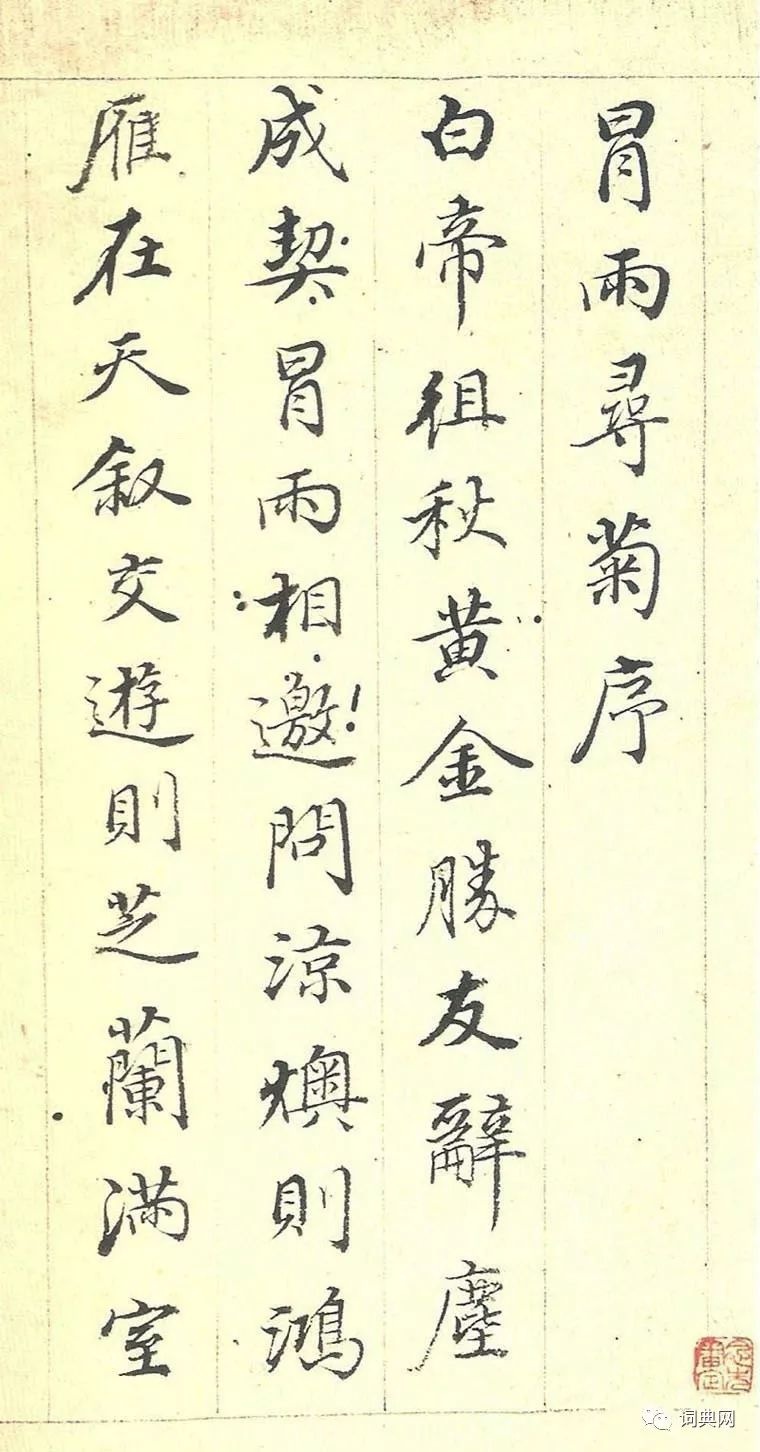 冒雨尋菊序
白帝徂秋黄金勝友辭塵
成契冒雨相邀問涼燠則鴻
雁在天叙交遊則芝蘭滿室
词典网